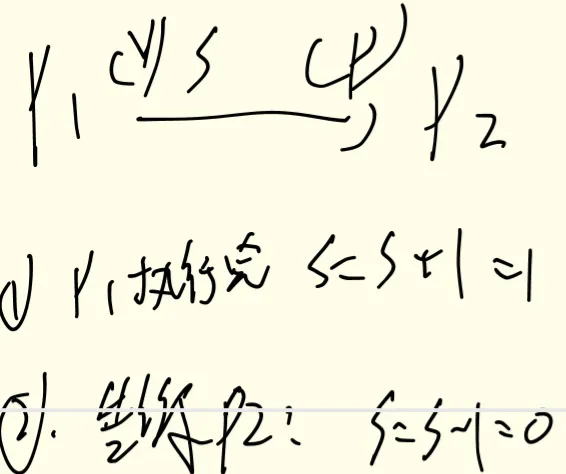 P1 (V) S (P) P2
① P1执行完 S=S+1=1
②. P2: S=S-1=0